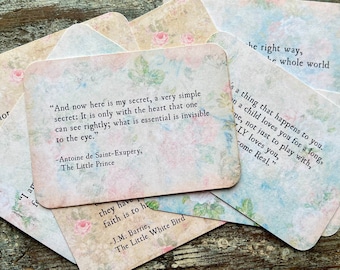 "And now here is my secret, a very simple
secret: It is only with the heart that one
can see rightly; what is essential is invisible
to the eye."
-Antoine de Saint-Exupery,
The Little Prince
the right way,
the whole world
a thing that happens to you.
a child loves you for a long,
time, not just to play with,
LY loves you,
ome Real."
they have
faith is to ha
-J.M. Barrie,
The Little White Bird
"I am